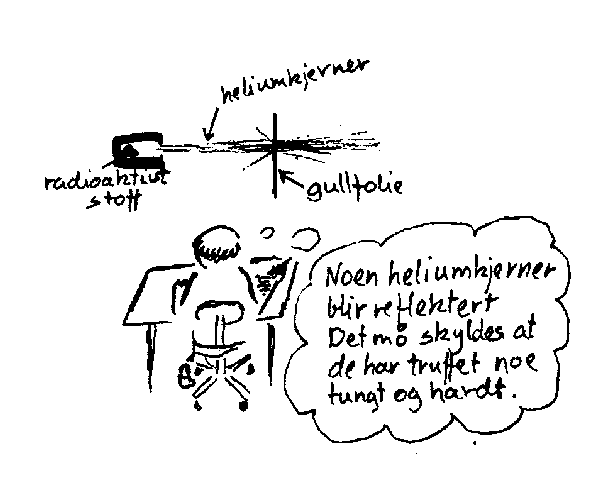 heliumkjerner
radioaktivt
stoff
gullfolie
Noen heliumkjerner
blir reflektert
Det må skyldes at
de har truffet noe
tungt og hardt.